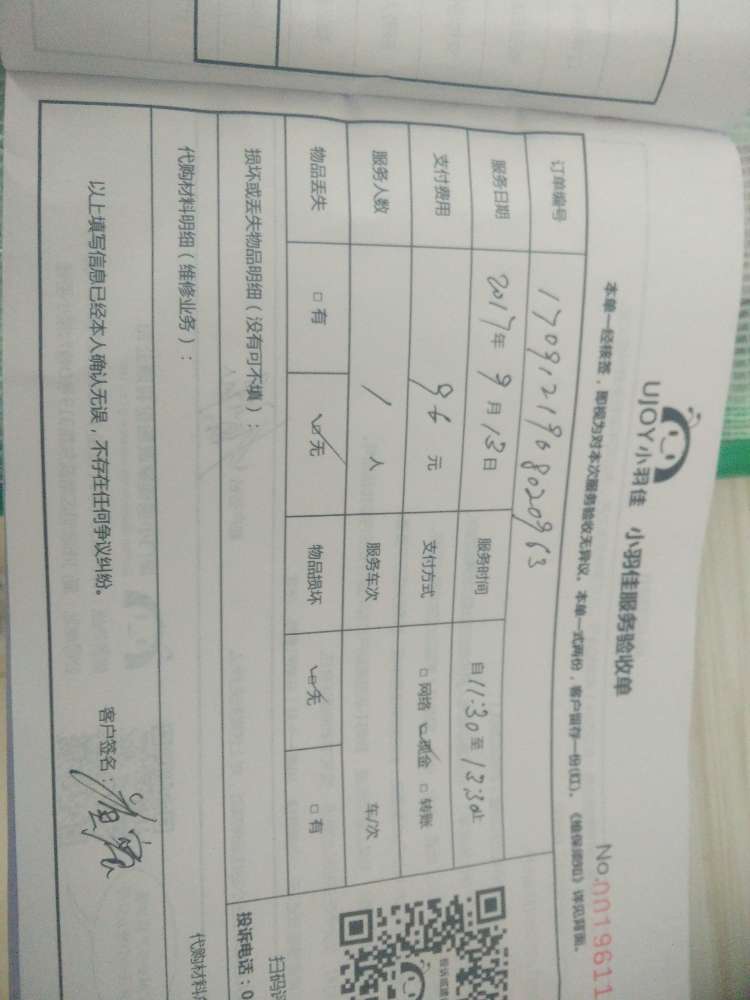 UJOY小羽佳 小羽佳服务验收单
No.0019611
本单一经核签，即视为对本次服务验收无异议。本单一式两份，客户留存一份(红)。《维保须知》详见背面。
订单编号 1709121908020963
服务日期 2017年9月13日 服务时间 自11:30至13:30止
支付费用 96元 支付方式 □网络 ☑现金 □转账
服务人数 1人 服务车次 车/次
物品丢失 □有 ☑无 物品损坏 ☑无 □有
损坏或丢失物品明细（没有可不填）：
代购材料明细（维修业务）：
代购材料
以上填写信息已经本人确认无误，不存在任何争议纠纷。 客户签名：
投诉电话：0